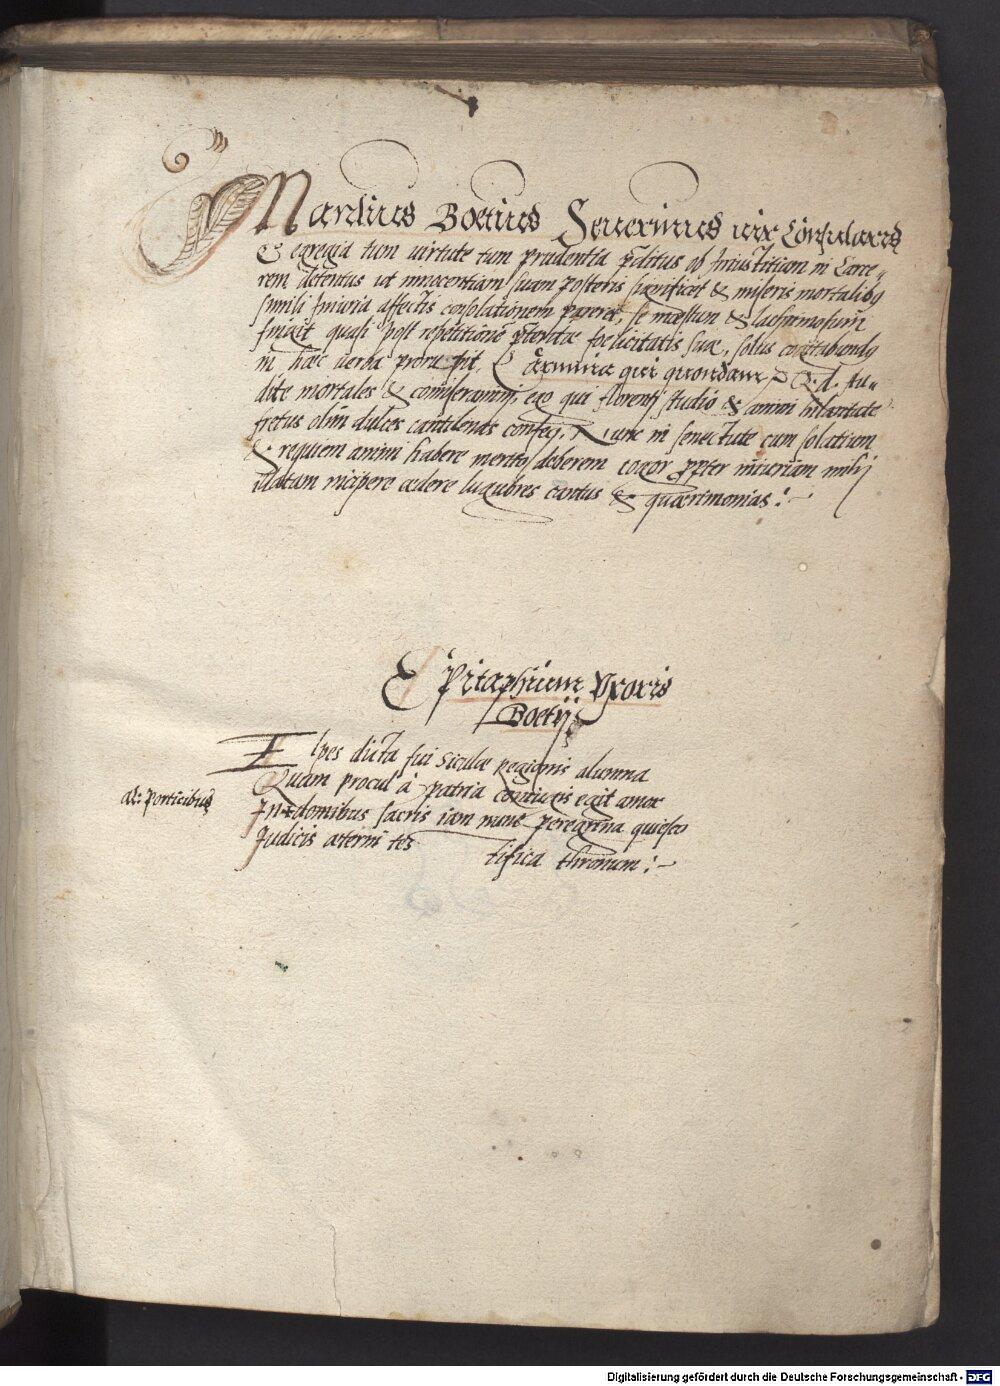 Manlius Boetius Seuerinus uir Co͂sularis
Et egregia tum uirtute tum prudentia p̄ditus ob Iniustitiam in Carce„
rem detentus ut innocentiam suam posteris significet & miseris mortalibq
simili Iniuria affectis consolationem pareret, se mœstum & lachrimosum
finxit quasi post repetitionē p̄teritæ fœlicitatis suæ, solus cogitabundq
in hæc uerba prorupit. Carmina qui quondam, Q. d. Au„
dite mortales & comiseramini, ego qui florenti studio & animi hilaritate
fretus olim dulces cantilenas confeci, Nunc in senectute cum solatium
& requiem animi habere merito deberem cogor ꝓpter iniuriam mihi
illatam incipere ædere lugubres cantus & quærimonias:~
Epitaphium Vxoris
Boetij
Elpes dicta fui Siculæ Regionis alumna
Quam procul à patria coniugis egit amor
al: Porticibus
In + domibus sacris iam nunc peregrina quiesco
Iudicis æterni tes tifica thronum:~
Digitalisierung gefördert durch die Deutsche Forschungsgemeinschaft - DFG